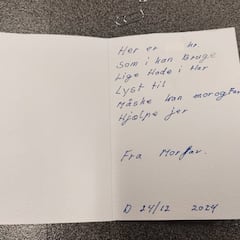 Her er kr.
Som i kan Bruge
Lige Hade i Har
Lyst til
Måske kan morogFar
Hjælpe jer
Fra Morfar.
D 24/12 2024